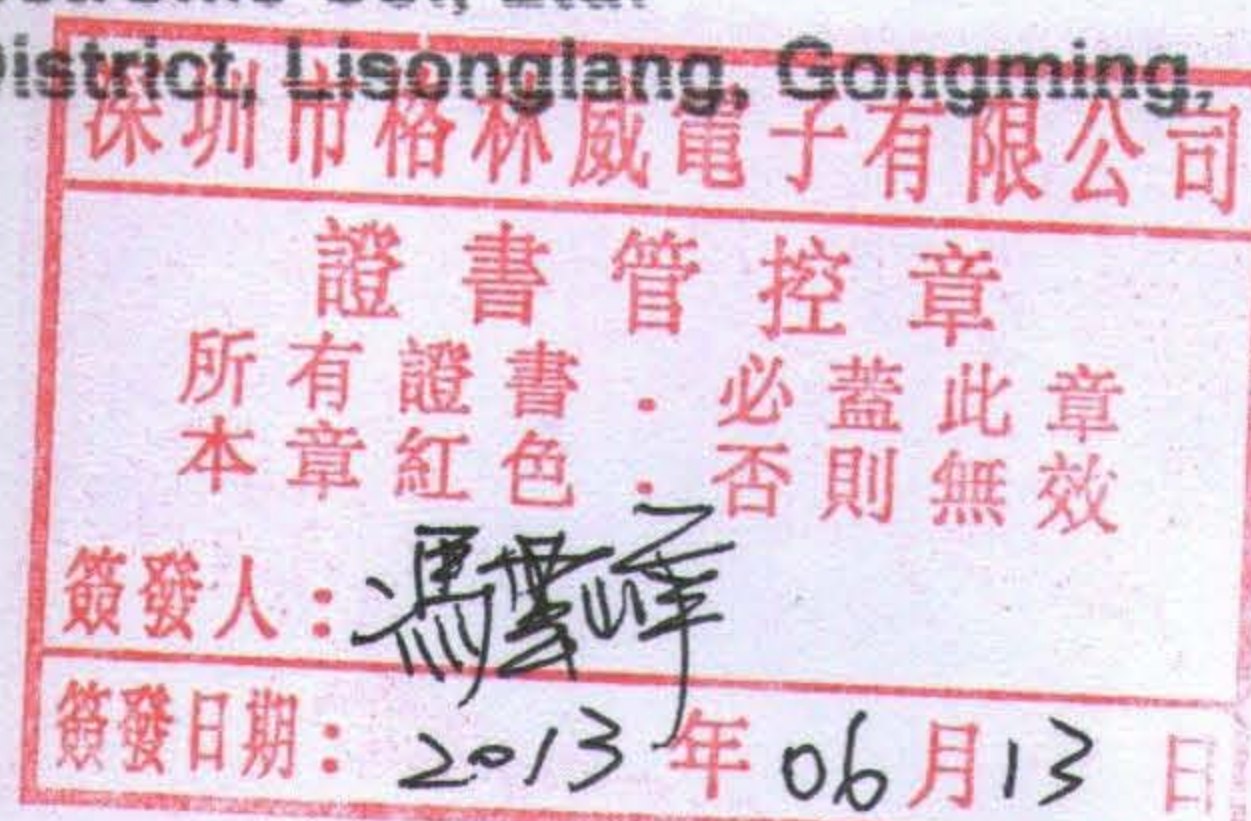 District, Lisonglang, Gongming,
深圳市格林威電子有限公司
證書管控章
所有證書．必蓋此章
本章紅色．否則無效
簽發人：馮雲峰
簽發日期：2013年06月13日